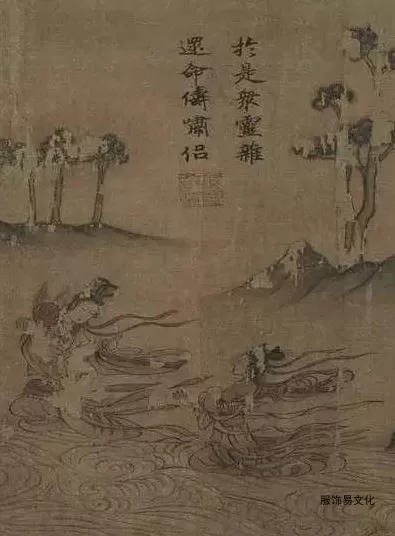 扵是衆靈雜
遝命儔嘯侶
服饰易文化